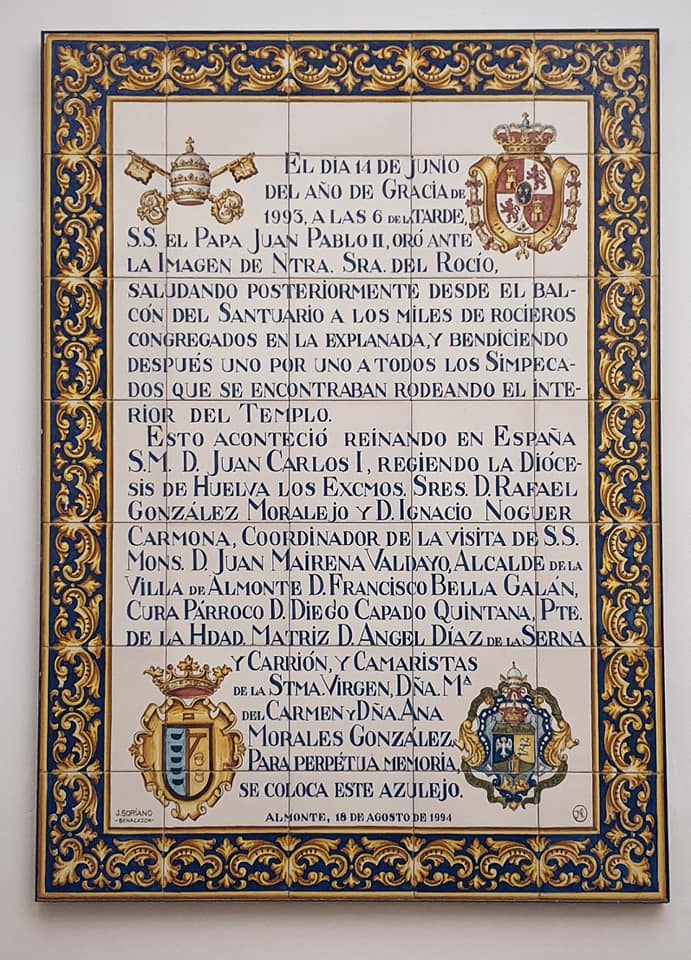 El día 14 de Junio
del año de Gracia de
1993, a las 6 de la tarde,
S.S. el Papa Juan Pablo II, oró ante
la Imagen de Ntra. Sra. del Rocío,
saludando posteriormente desde el bal-
cón del Santuario a los miles de rocieros
congregados en la explanada, y bendiciendo
después uno por uno a todos los Simpeca-
dos que se encontraban rodeando el inte-
rior del Templo.
Esto aconteció reinando en España
S.M. D. Juan Carlos I, regiendo la Dióce-
sis de Huelva los Excmos. Sres. D. Rafael
González Moralejo y D. Ignacio Noguer
Carmona, Coordinador de la visita de S.S.
Mons. D. Juan Mairena Valdayo, Alcalde de la
Villa de Almonte D. Francisco Bella Galán,
Cura Párroco D. Diego Capado Quintana, Pte.
de la Hdad. Matriz D. Angel Díaz de la Serna
y Carrión, y Camaristas
de la Stma. Virgen, Dña. Mª
del Carmen y Dña. Ana
Morales González.
Para perpétua memoria,
se coloca este azulejo.
Almonte, 18 de Agosto de 1994
J. Soriano
-Benacazon-